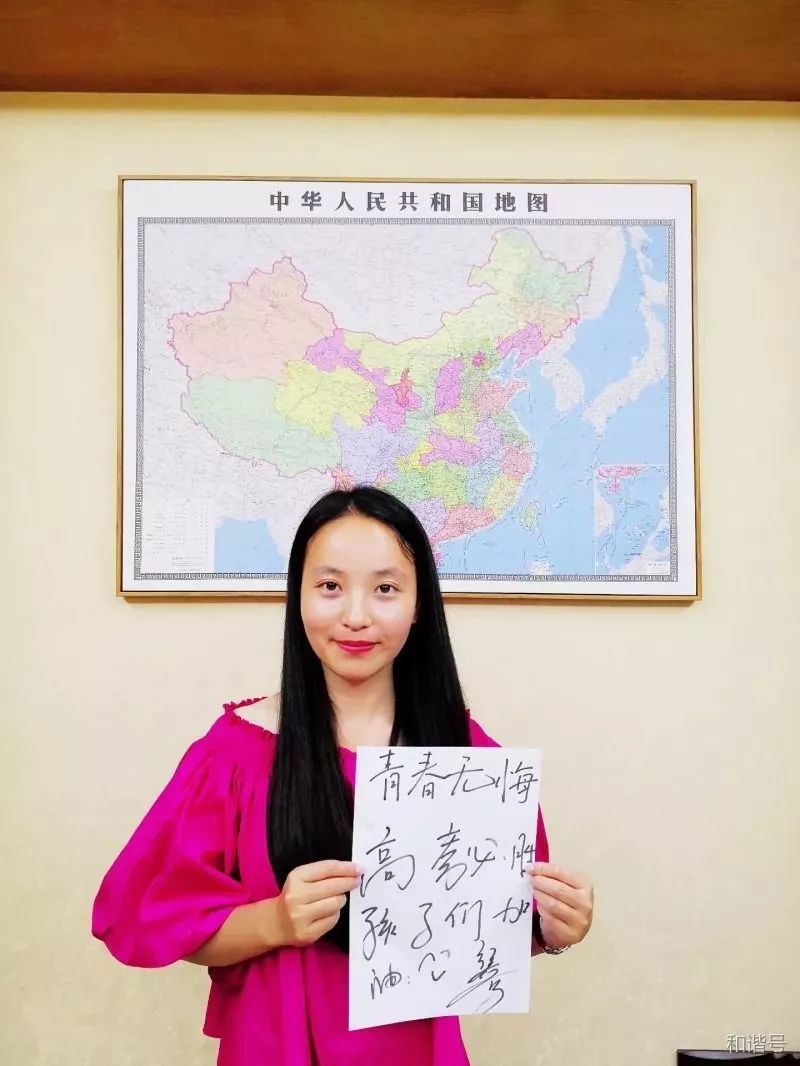 中华人民共和国地图
青春无悔
高考必胜
孩子们加
油:
和谐号